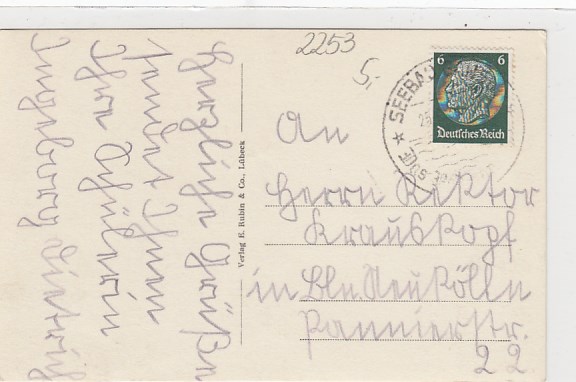 2253
5,-
6 6
Deutsches Reich
SEEBAD
An
Herrn Rektor
Krauskopf
in Bln. Neukölln
Pannierstr.
22
Verlag E. Rubin & Co., Lübeck
Herzliche Grüße
sendet Ihnen
Ihre Schülerin
Ingeborg Dietrich